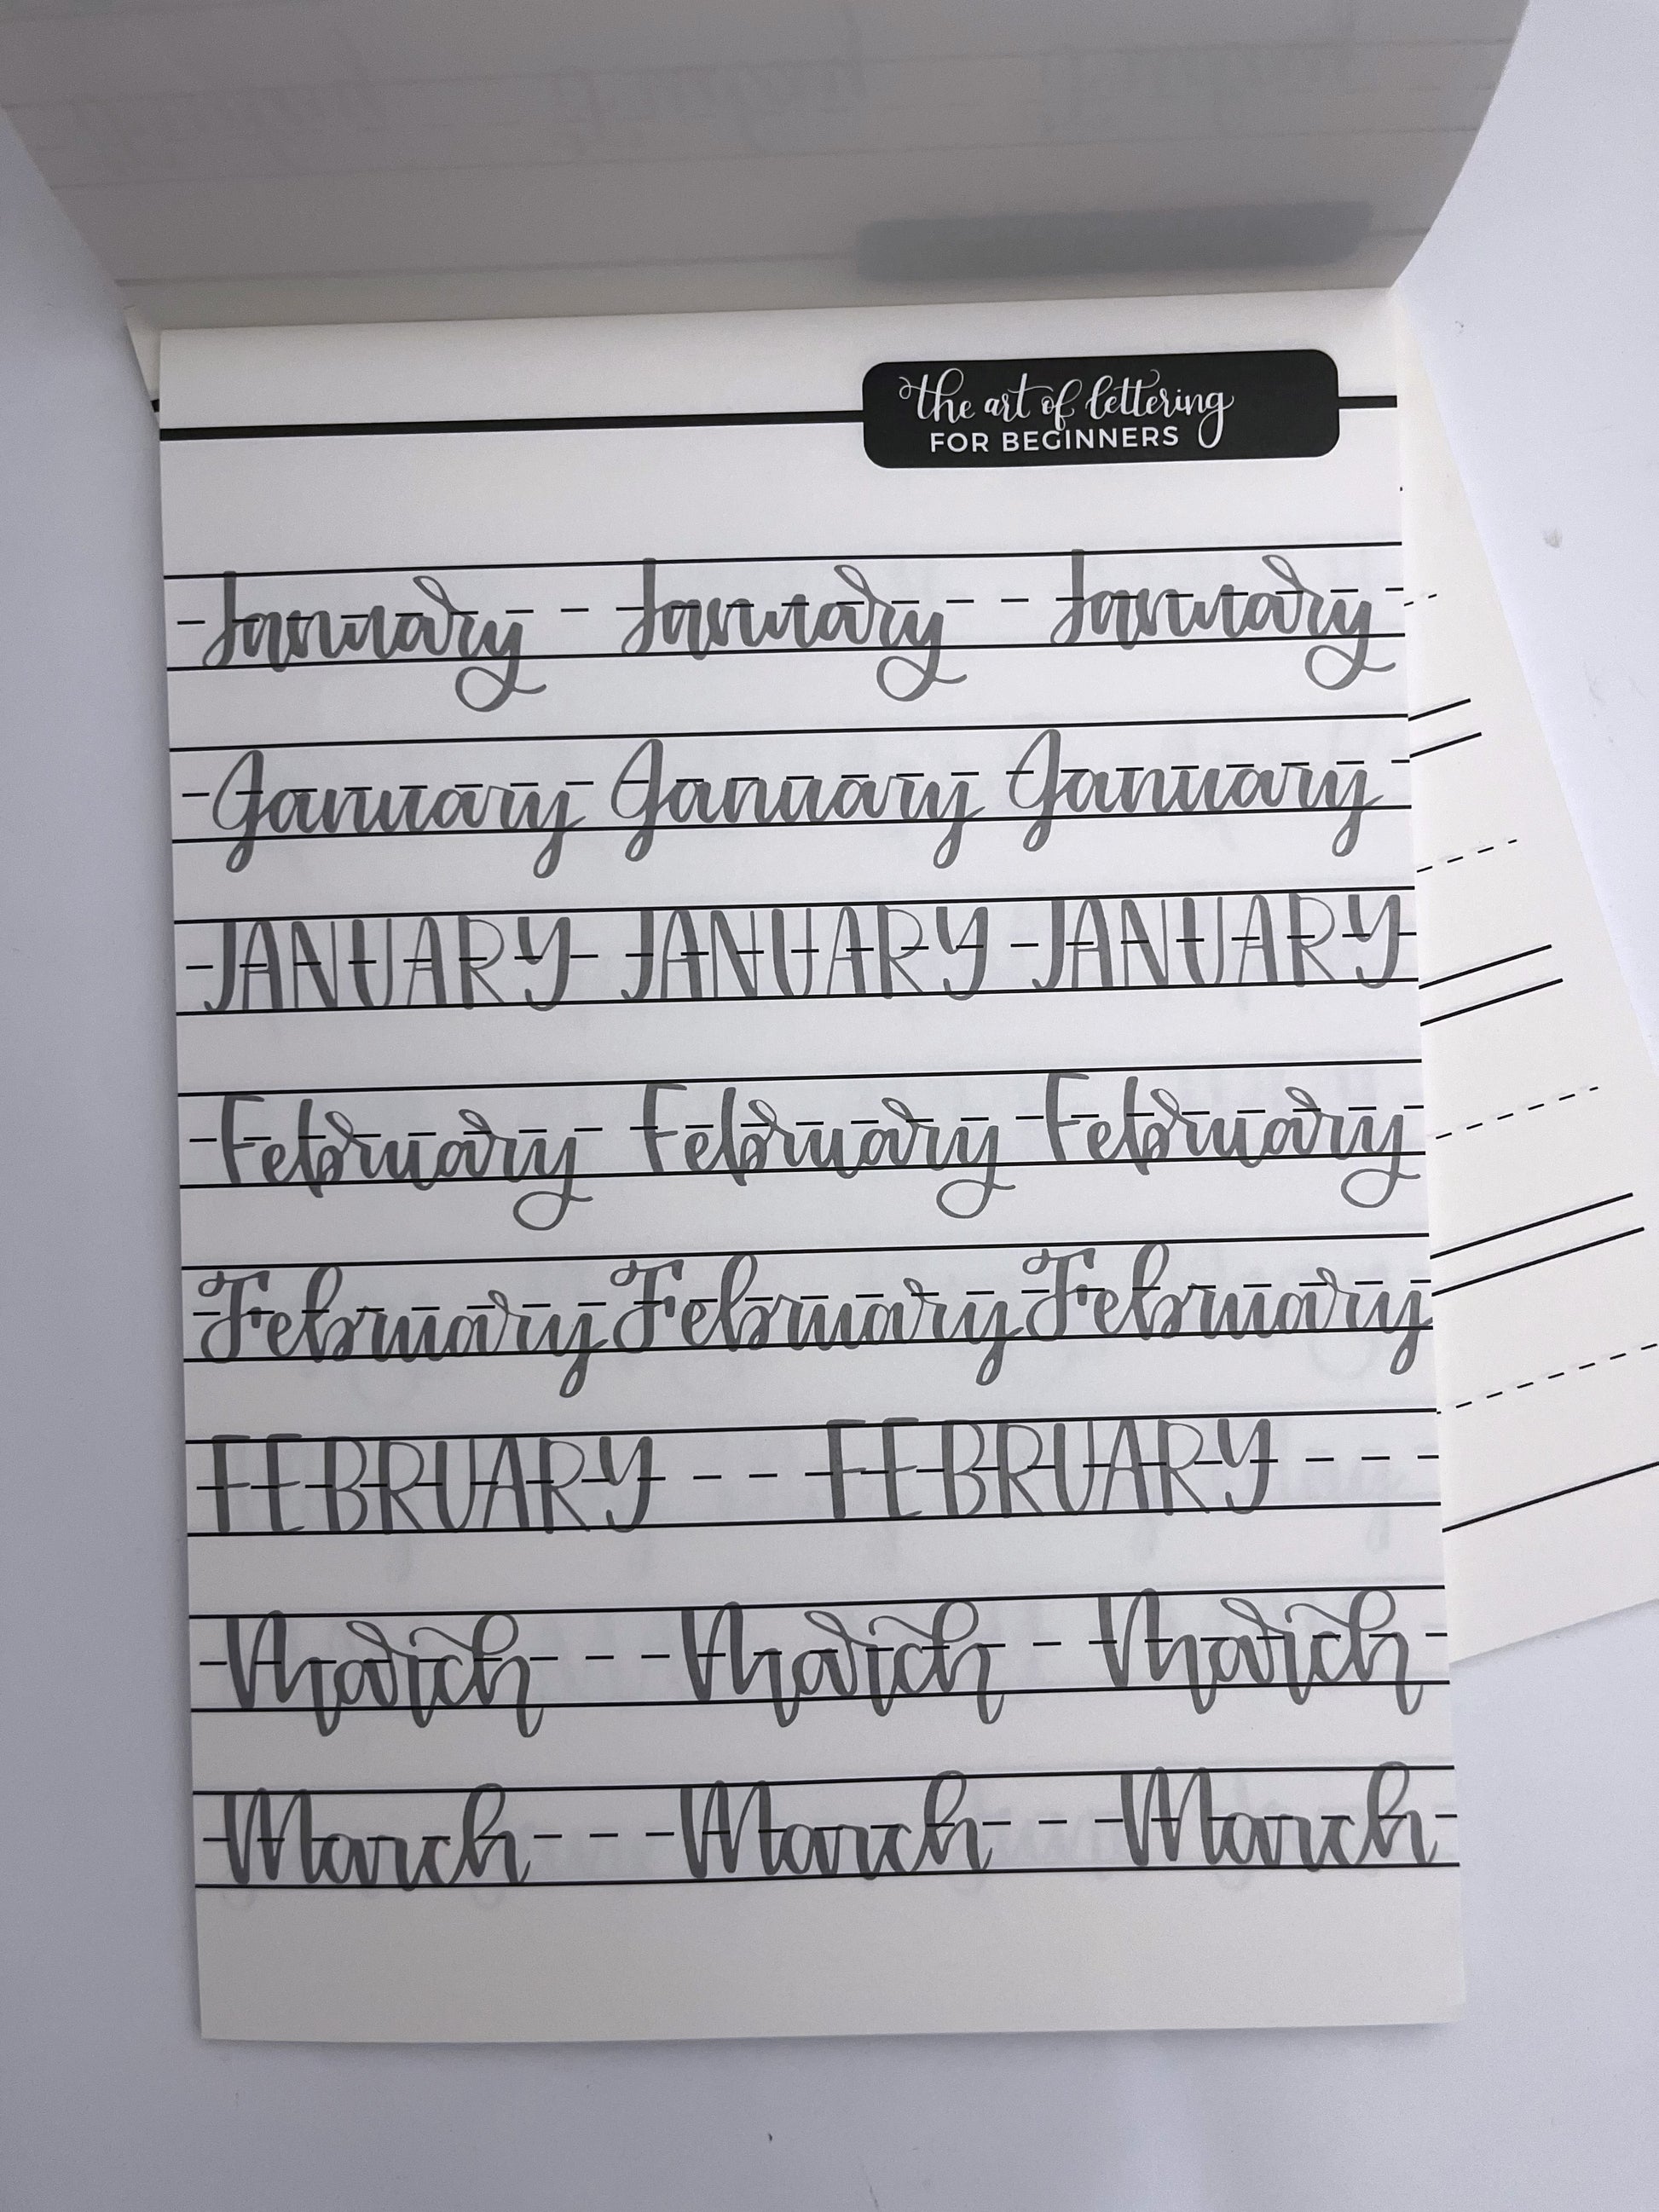 the art of lettering
FOR BEGINNERS
January January January
January January January
JANUARY JANUARY JANUARY
February February February
February February February
FEBRUARY FEBRUARY
March March March
March March March